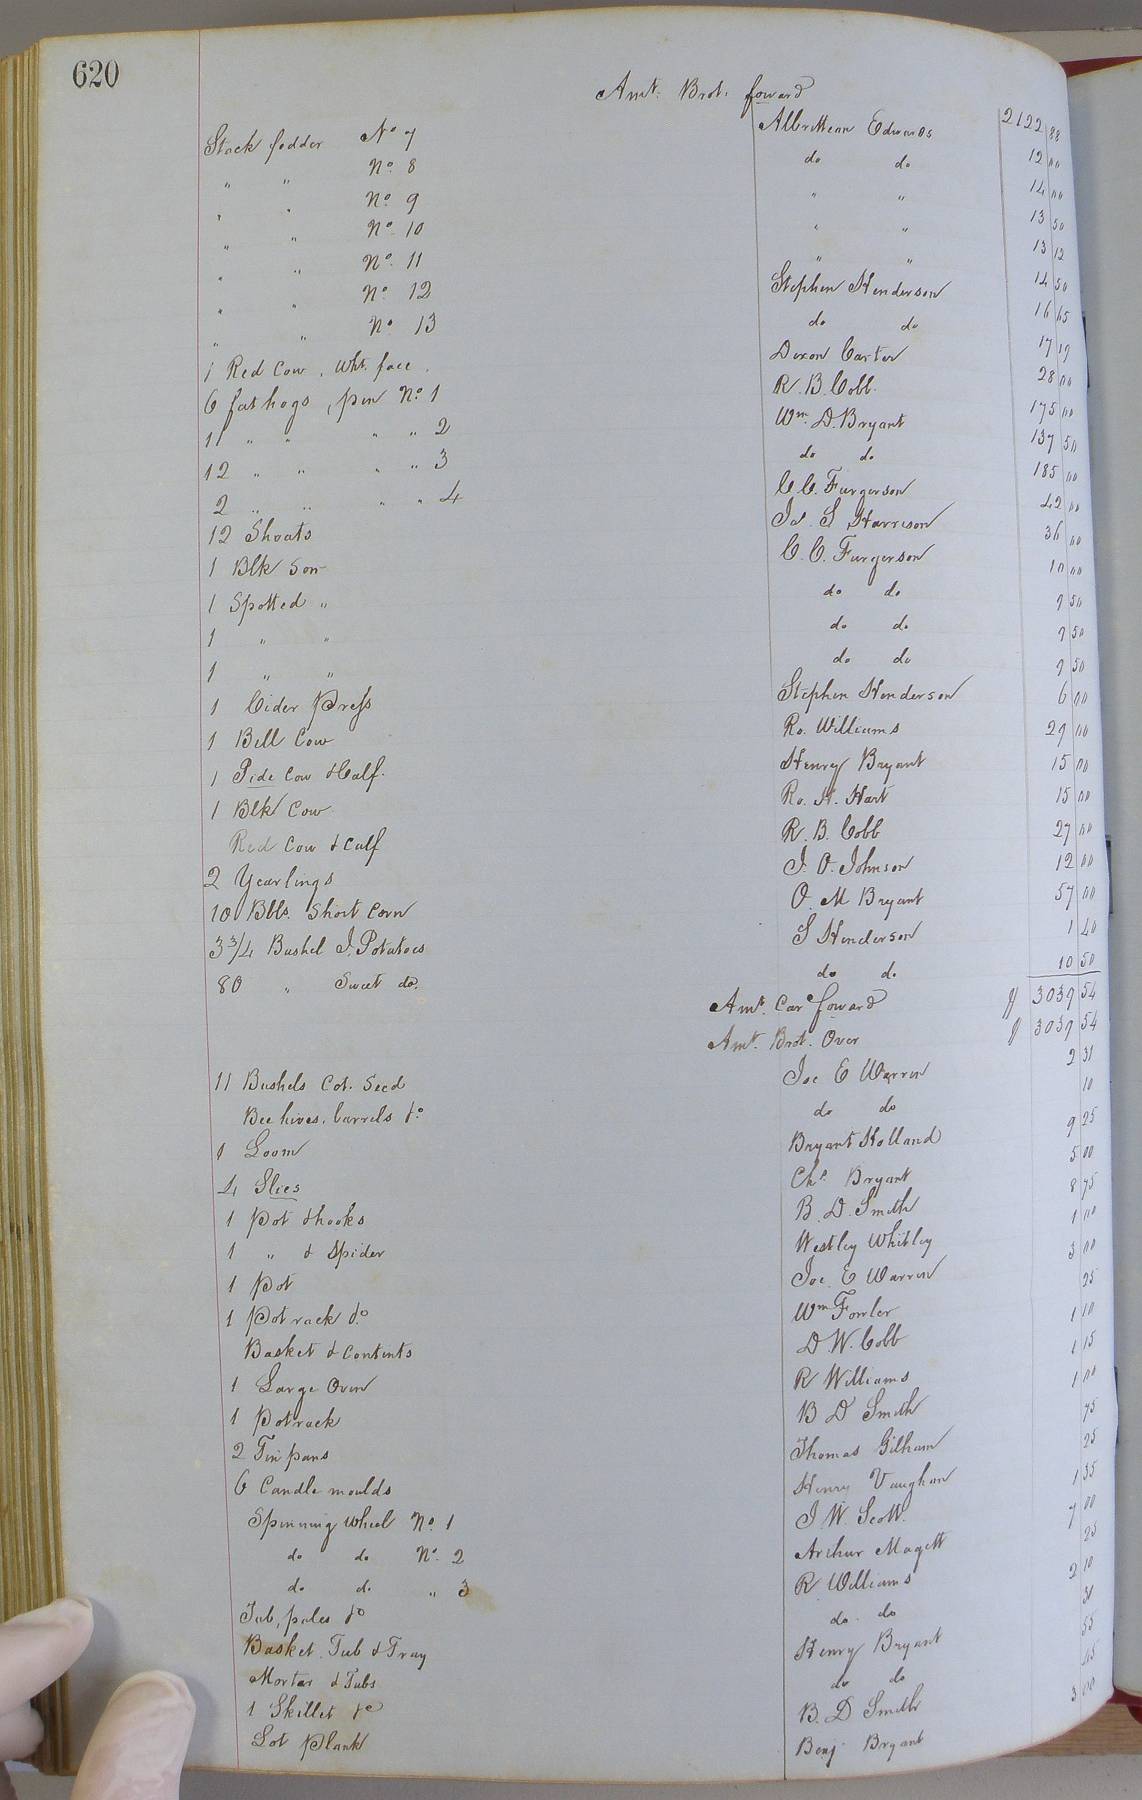 620
Amt. Brot. foward 2122 88
Stack fodder No 7 Albrittian Edwards 12 00
" " No. 8 do do 14 00
" " No. 9 " " 13 50
" " No. 10 " " 13 12
" " No. 11 " " 14 50
" " No. 12 Stephen Henderson 16 65
" " No 13 do do 17 19
1 Red Cow, Wht. face. Dixon Carter 28 00
6 fat hogs, pen No. 1 R. B. Cobb. 175 00
11 " " " " 2 Wm. D. Bryant 137 50
12 " " " " 3 do do 185 00
2 " " " " 4 C. C. Furgerson 42 00
12 Shoats Jas. S Harrison 36 00
1 Blk Sow C. C. Furgerson 10 00
1 Spotted " do do 9 50
1 " " do do 9 50
1 " " do do 9 50
1 Cider Press Stephen Henderson 6 00
1 Bell Cow Ro. Williams 29 00
1 Pide Cow & Calf. Henry Bryant 15 00
1 Blk Cow Ro. H. Hart 15 00
Red Cow & Calf R. B. Cobb 27 00
2 Yearlings J. O. Johnson 12 00
10 Bbls. Short Corn O. M Bryant 57 00
3 3/4 Bushel I. Potatoes S Henderson 1 40
80 " Sweet do. do do 10 50
Amt. Card foward $ 3039 54
Amt. Brot. Over $ 3039 54
11 Bushels Cot. Seed Joe E Warren 2 31
Bee hives, barrels &c do do 10
1 Loom Bryant Holland 9 25
4 Slies Chs. Bryant 5 00
1 Pot & hooks B. D. Smith 8 75
1 " & Spider Westley Whitley 1 00
1 Pot Joe. E Warren 3 00
1 Pot rack &c Wm Fowler 25
Basket & Contents D. W. Cobb 1 10
1 Large Oven R Williams 1 15
1 Pot rack B D Smith 1 00
2 Tin pans Thomas Gilham 75
6 Candle moulds Henry Vaughan 25
Spinning wheel No. 1 J W Scott. 1 35
do do No. 2 Arthur Magett 7 00
do do " 3 R Williams 25
Tub, pales &c do do 2 10
Basket, Tub & Tray Henry Bryant 30
Mortar & Tubs do do 55
1 Skillet &c B. D Smith 45
Lot Plank Benj Bryant 3 00